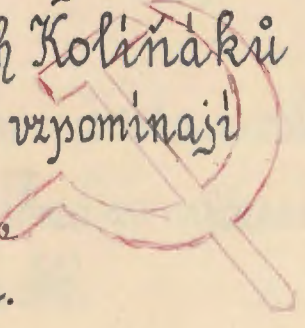 h Kolíňáků
vzpomínají